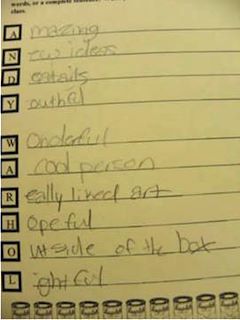 words, or a complete
A mazing
N ew ideas
D eatails
Y
W onderful
A cool person
R eally liked art
H opeful
O utside of the box
L ightful